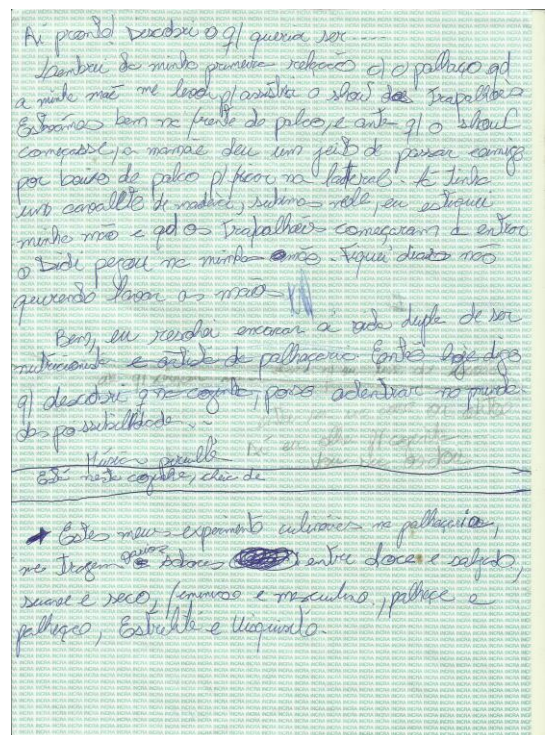 Aí pronto! Descobri o q/ queria ser....
Lembrei da minha primeira relação c/ o palhaço qd
a minha mãe, me levou p/ assistir o show dos Trapalhões
Estávamos bem na frente do palco, e ante q/ o show
começasse, a mamãe deu um jeito de passar comigo
por baixo do palco p/ ficar na lateral. Aí tinha
um cavalete de madeira, subimos nele, eu estiquei
minha mão e qd os Trapalhões começaram a entrar
o Didi pegou na minha mão. Fiquei dias não
querendo lavar as mãos
Bem, eu resolvi encarar a vida dupla de ser
nutricionista e artista de palhaçaria. Então hoje digo
q/ descobri q na cozinha, posso adentrar no mundo
das possibilidade...
Música
Esse nesta cozinha, cheia de
→ Estes meus experimento culinários na palhaçaria,
me trazem sabores entre doce e salgado,
suave e seco, feminino e masculino, palhaça e
palhaço, Estrelité e Uisquisito.
INCRA INCRA INCRA INCRA